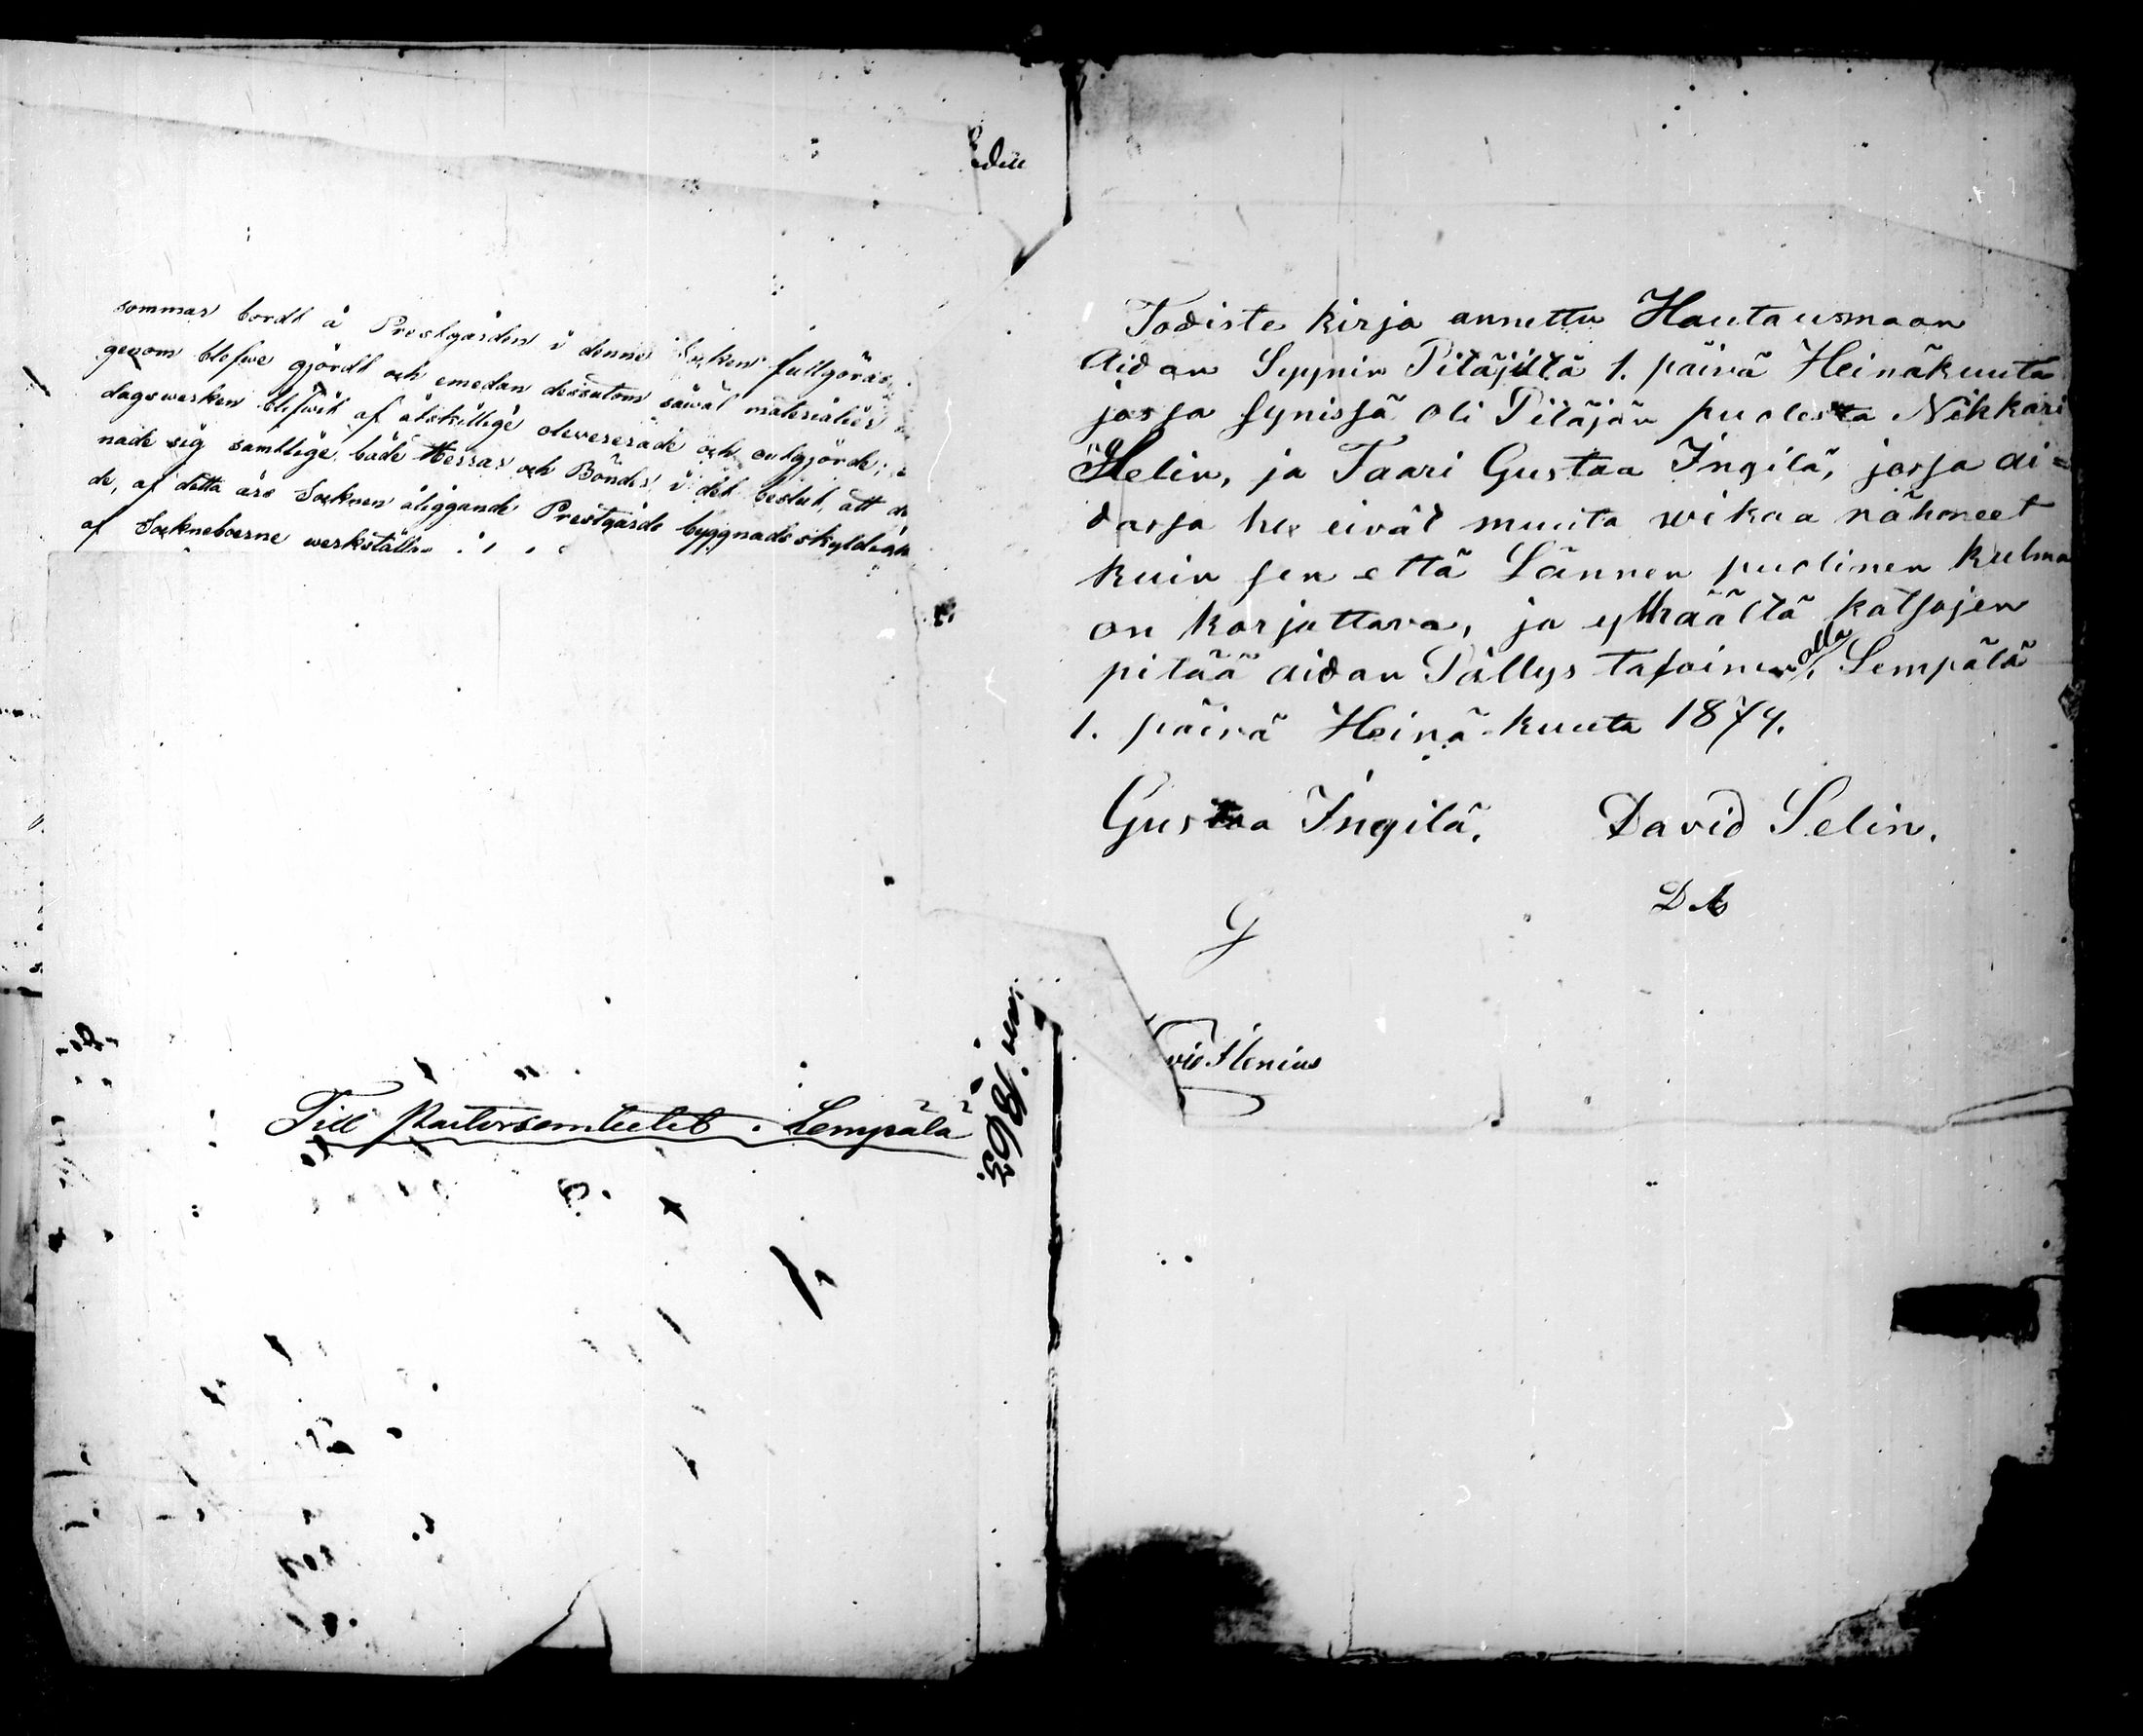 sommar bordt å Prestgården i denne Soken fullgöras
genom blefwe gjördt och emedan dessutom såwäl materialier
dagswerken blifwit af åtskillige olevererade och outgjorde;
nade sig samtlige både Herrar och Bönder i det beslut, att
de, af detta års Soknen åliggande Prestgårds byggnads skyldigh
af Sokneboerne werkställa
Till Pastorsembetet i Lempälä
1863.
Todiste kirja annettu Hautausmaan
Aidan Syynin Pitäjiltä 1. päivä Heinäkuuta
jossa synissä oli Pitäjän puolesta Nikkari
Helin, ja Taari Gustaa Ingilä, jossa ai=
dassa he eivät muuta wikaa nähneet
kuin sen että Lännen puolinen kulma
on korjattava, ja ylhäältä katsojen
pitää aidan Pällys tasainen olla. Lempälä
1. päivä Heinä-kuuta 1874.
Gustaa Ingilä. David Selin.
G
vid Ilenius